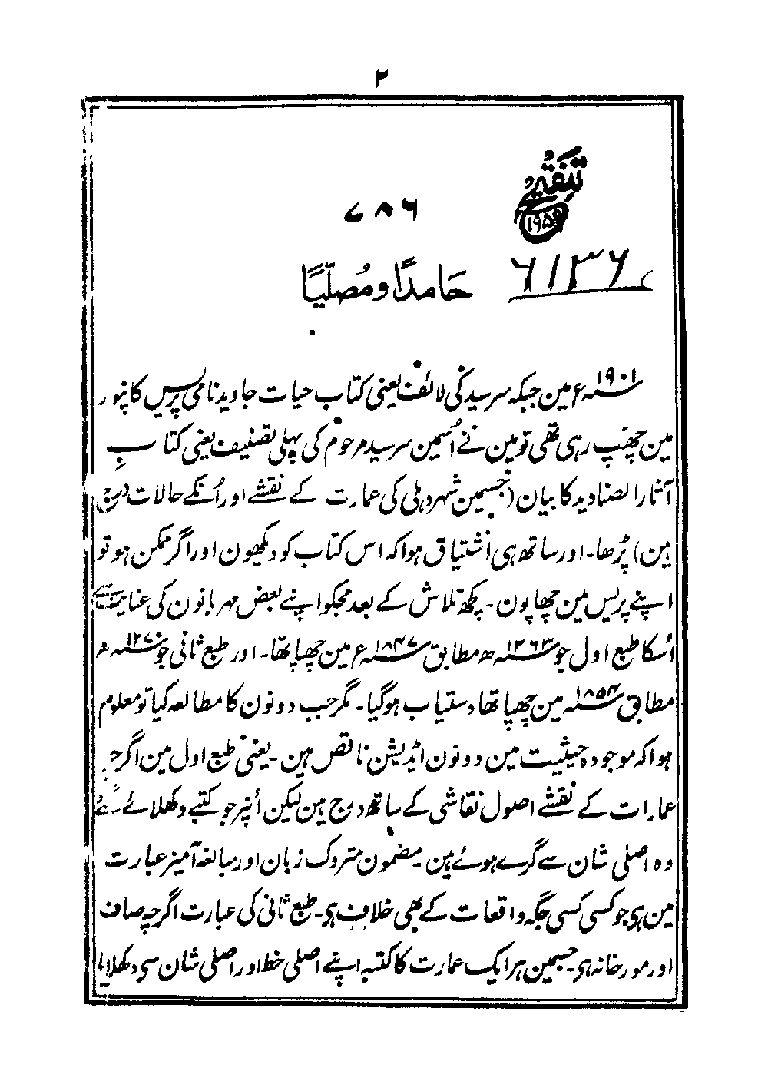 ۲
تنقیح
۱۹۵۶
۷۸۶
۶۱۳۶
حامدًا و مصلّیًا
۱۹۰۱ء مین جبکہ سرسید کی لائف یعنی کتاب حیات جاوید نامی پریس کانپور
مین چھپ رہی تھی تو مین نے اُسمین سرسید مرحوم کی پہلی تصنیف یعنی کتاب
آثار الصنادید کا بیان (جسمین شہر دہلی کی عمارت کے نقشے اور اُنکے حالات درج
ہین) پڑھا۔ اور ساتھ ہی اشتیاق ہوا کہ اس کتاب کو دیکھون اور اگر ممکن ہو تو
اپنے پریس مین چھاپون۔ کچھ تلاش کے بعد مجکو اپنے بعض مہربانون کی عنایت سے
اُسکا طبع اول جو ۱۲۶۳ھ مطابق ۱۸۴۷ء مین چھپا تھا۔ اور طبع ثانی جو ۱۲۷۰ھ
مطابق ۱۸۵۴ مین چھپا تھا دستیاب ہوگیا۔ مگر جب دونون کا مطالعہ کیا تو معلوم
ہوا کہ موجودہ حیثیت مین دونون اڈیشن ناقص ہین۔ یعنی طبع اول مین اگرچہ
عمارات کے نقشے اصول نقاشی کے ساتھ درج ہین لیکن اُنپر جو کتبے دکھلائے گئے
وہ اصلی شان سے گرے ہوئے ہین۔ مضمون متروک زبان اور مبالغہ آمیز عبارت
مین ہی جو کسی کسی جگہ واقعات کے بھی خلاف ہی۔ طبع ثانی کی عبارت اگرچہ صاف
اور مورخانہ ہی۔ جسمین ہر ایک عمارت کا کتبہ اپنے اصلی خط اور اصلی شان سی دکھلایا